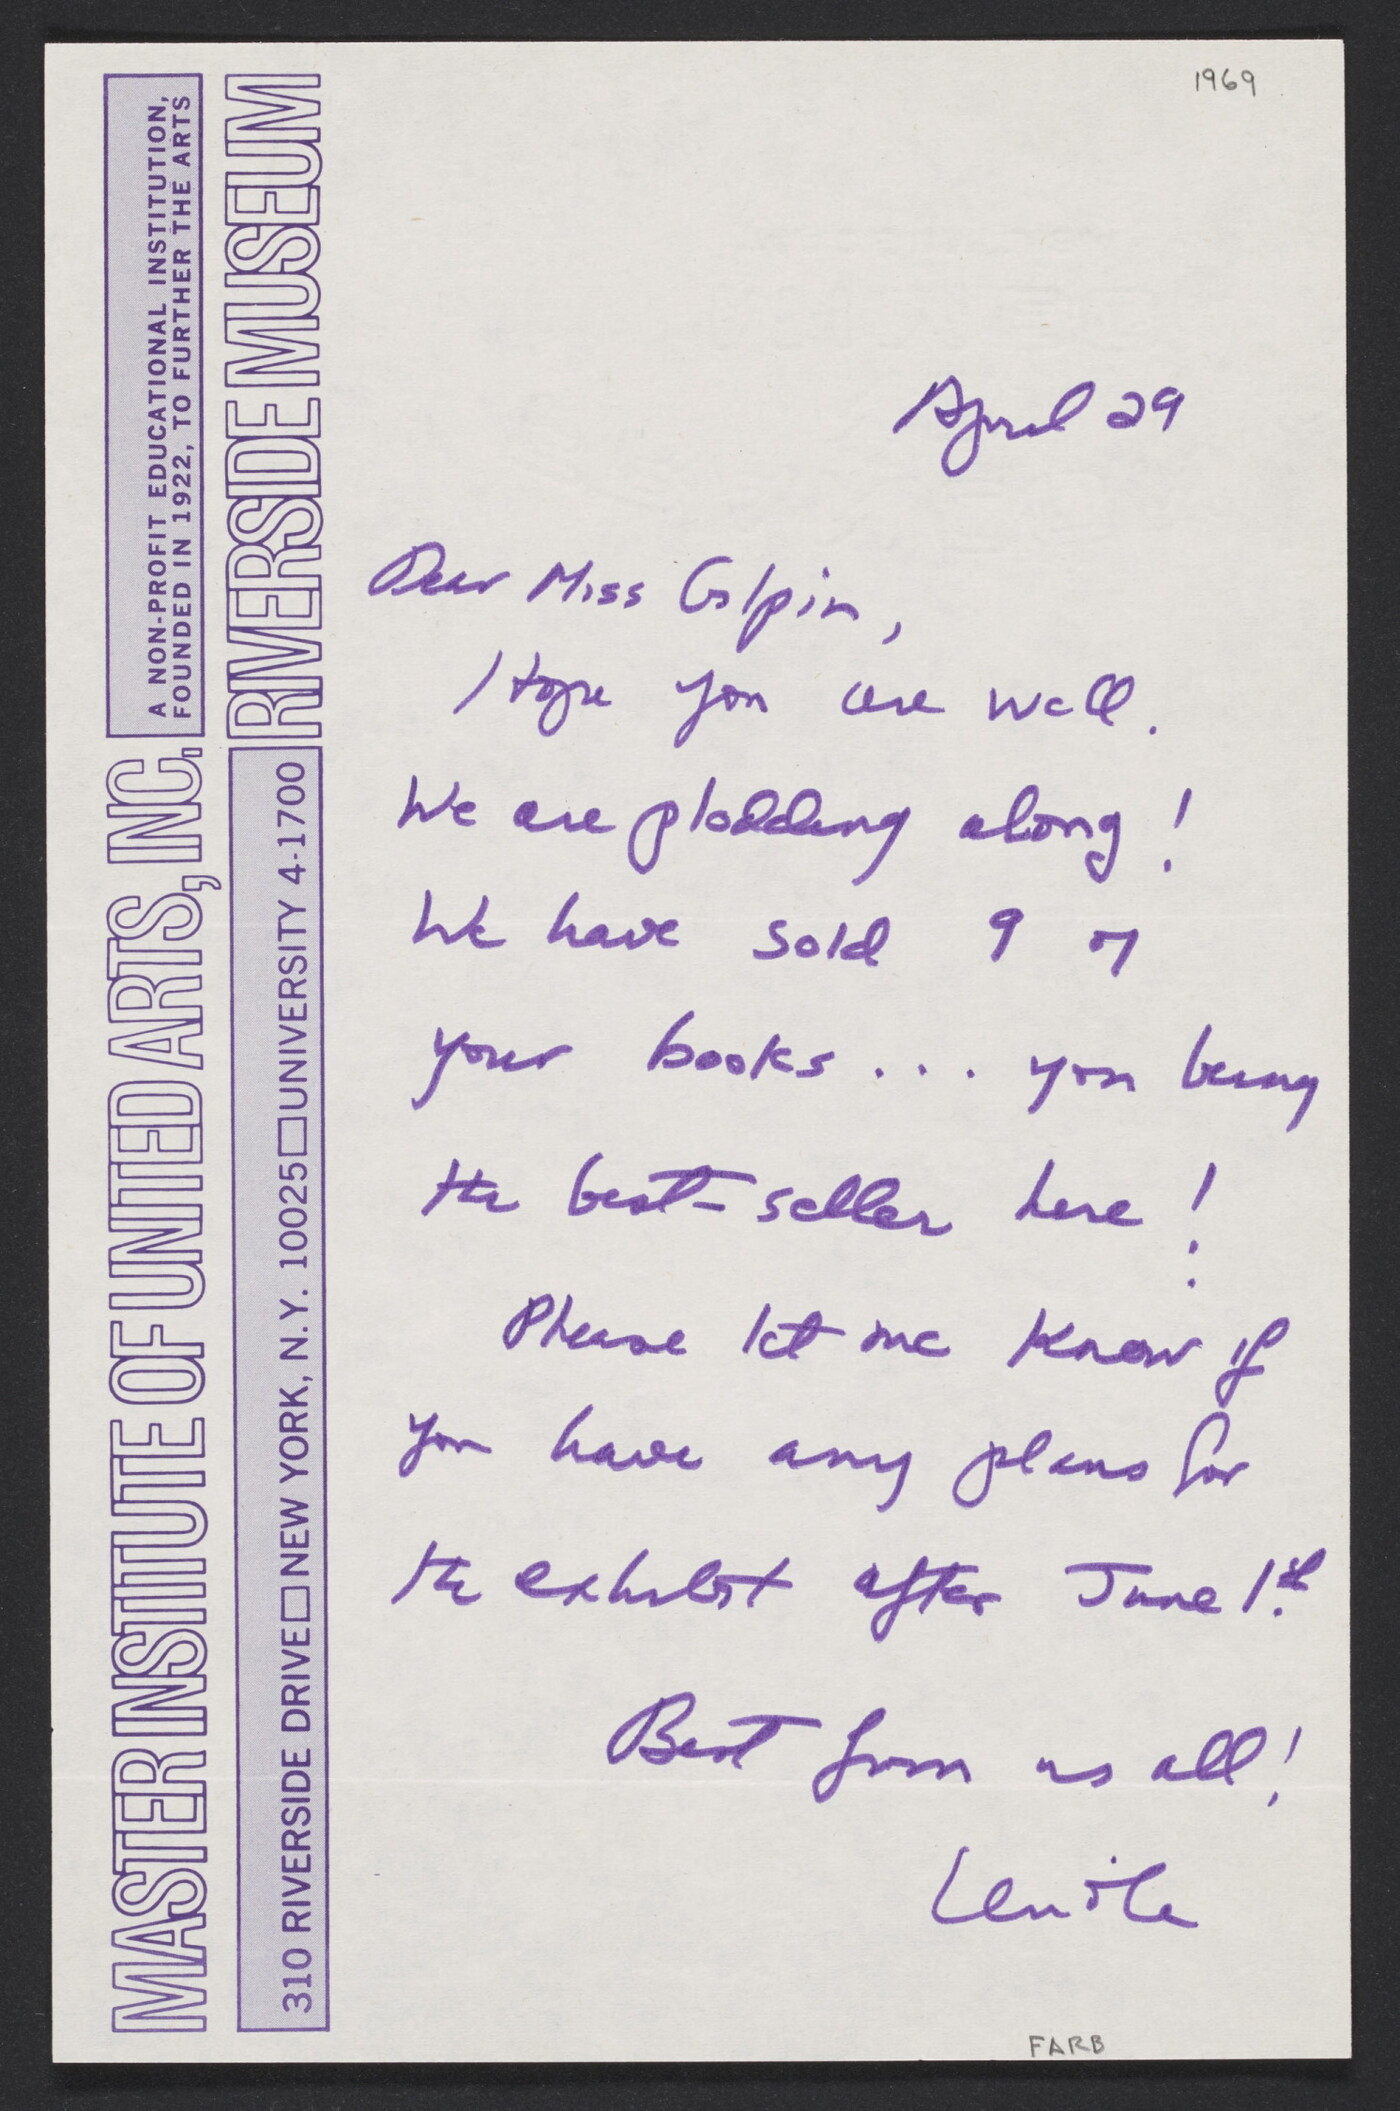 1969
MASTER INSTITUTE OF UNITED ARTS, INC.
A NON-PROFIT EDUCATIONAL INSTITUTION,
FOUNDED IN 1922, TO FURTHER THE ARTS
RIVERSIDE MUSEUM
310 RIVERSIDE DRIVE□NEW YORK, N.Y. 10025□UNIVERSITY 4-1700
April 29
Dear Miss Gilpin,
Hope you are well.
We are plodding along!
We have sold 9 of
your books... you being
the best-seller here!
Please let me know if
you have any plans for
the exhibit after June 1st.
Best from us all!
FARB